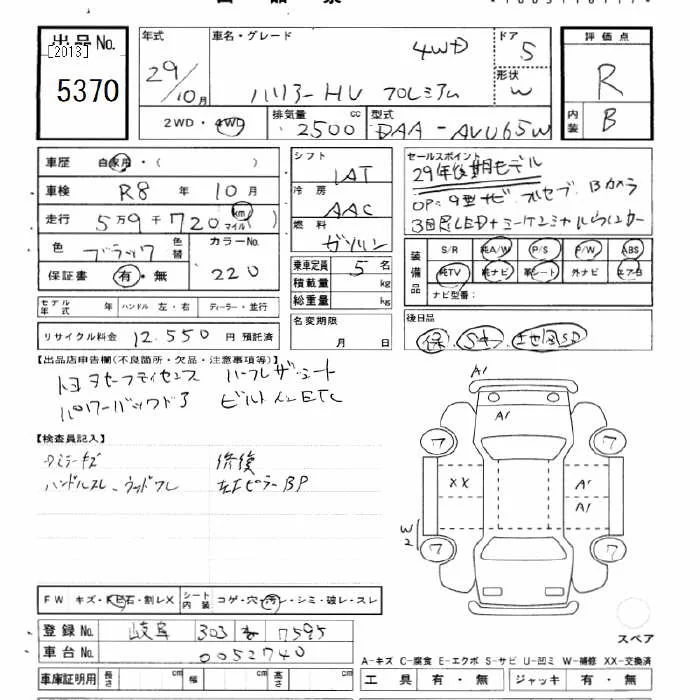 出品No.
[2013]
5370
年式
29/10月
車名・グレード
4WD
ハリアーHV プレミアム
ドア
5
形状
W
評価点
R
内装
B
2WD・4WD
排気量
2500
cc
型式
DAA-AVU65W
車歴 自家用・( )
車検 R8 年 10 月
走行 5万9千720 km マイル
色 ブラック 色替
カラーNo.
220
保証書 有・無
シフト
IAT
冷房
AAC
燃料
ガソリン
乗車定員 5 名
積載量 kg
総重量 kg
セールスポイント
29年後期モデル
OP: 9型ナビ フルセグ Bカメラ
3目LED
装備品
S/R 純A/W P/S P/W ABS
純TV 純ナビ 革シート 外ナビ エアB
ナビ型番:
モデル年式 年 ハンドル 左・右 ディーラー・並行
リサイクル料金 12,550 円 預託済
名変期限
月 日
後日品
保
【出品店申告欄(不良箇所・欠品・注意事項等)】
トヨタセーフティセンス ハーフレザーシート
パワーバックドア ビルトインETC
【検査員記入】
ミラーキズ 修復
ハンドルスレ、ウッドワレ ピラーBP
A1
A1
7
7
XX
A1
A1
W2
7
7
FW キズ・石・割レX
シート内装 コゲ・穴・汚レ・シミ・破レ・スレ
登録No. 岐阜 303 7595
車台No. 0052740
スペア
A-キズ C-腐食 E-エクボ S-サビ U-凹ミ W-補修 XX-交換済
車庫証明用 長さ cm 幅 cm 高さ cm
工具 有・無 ジャッキ 有・無